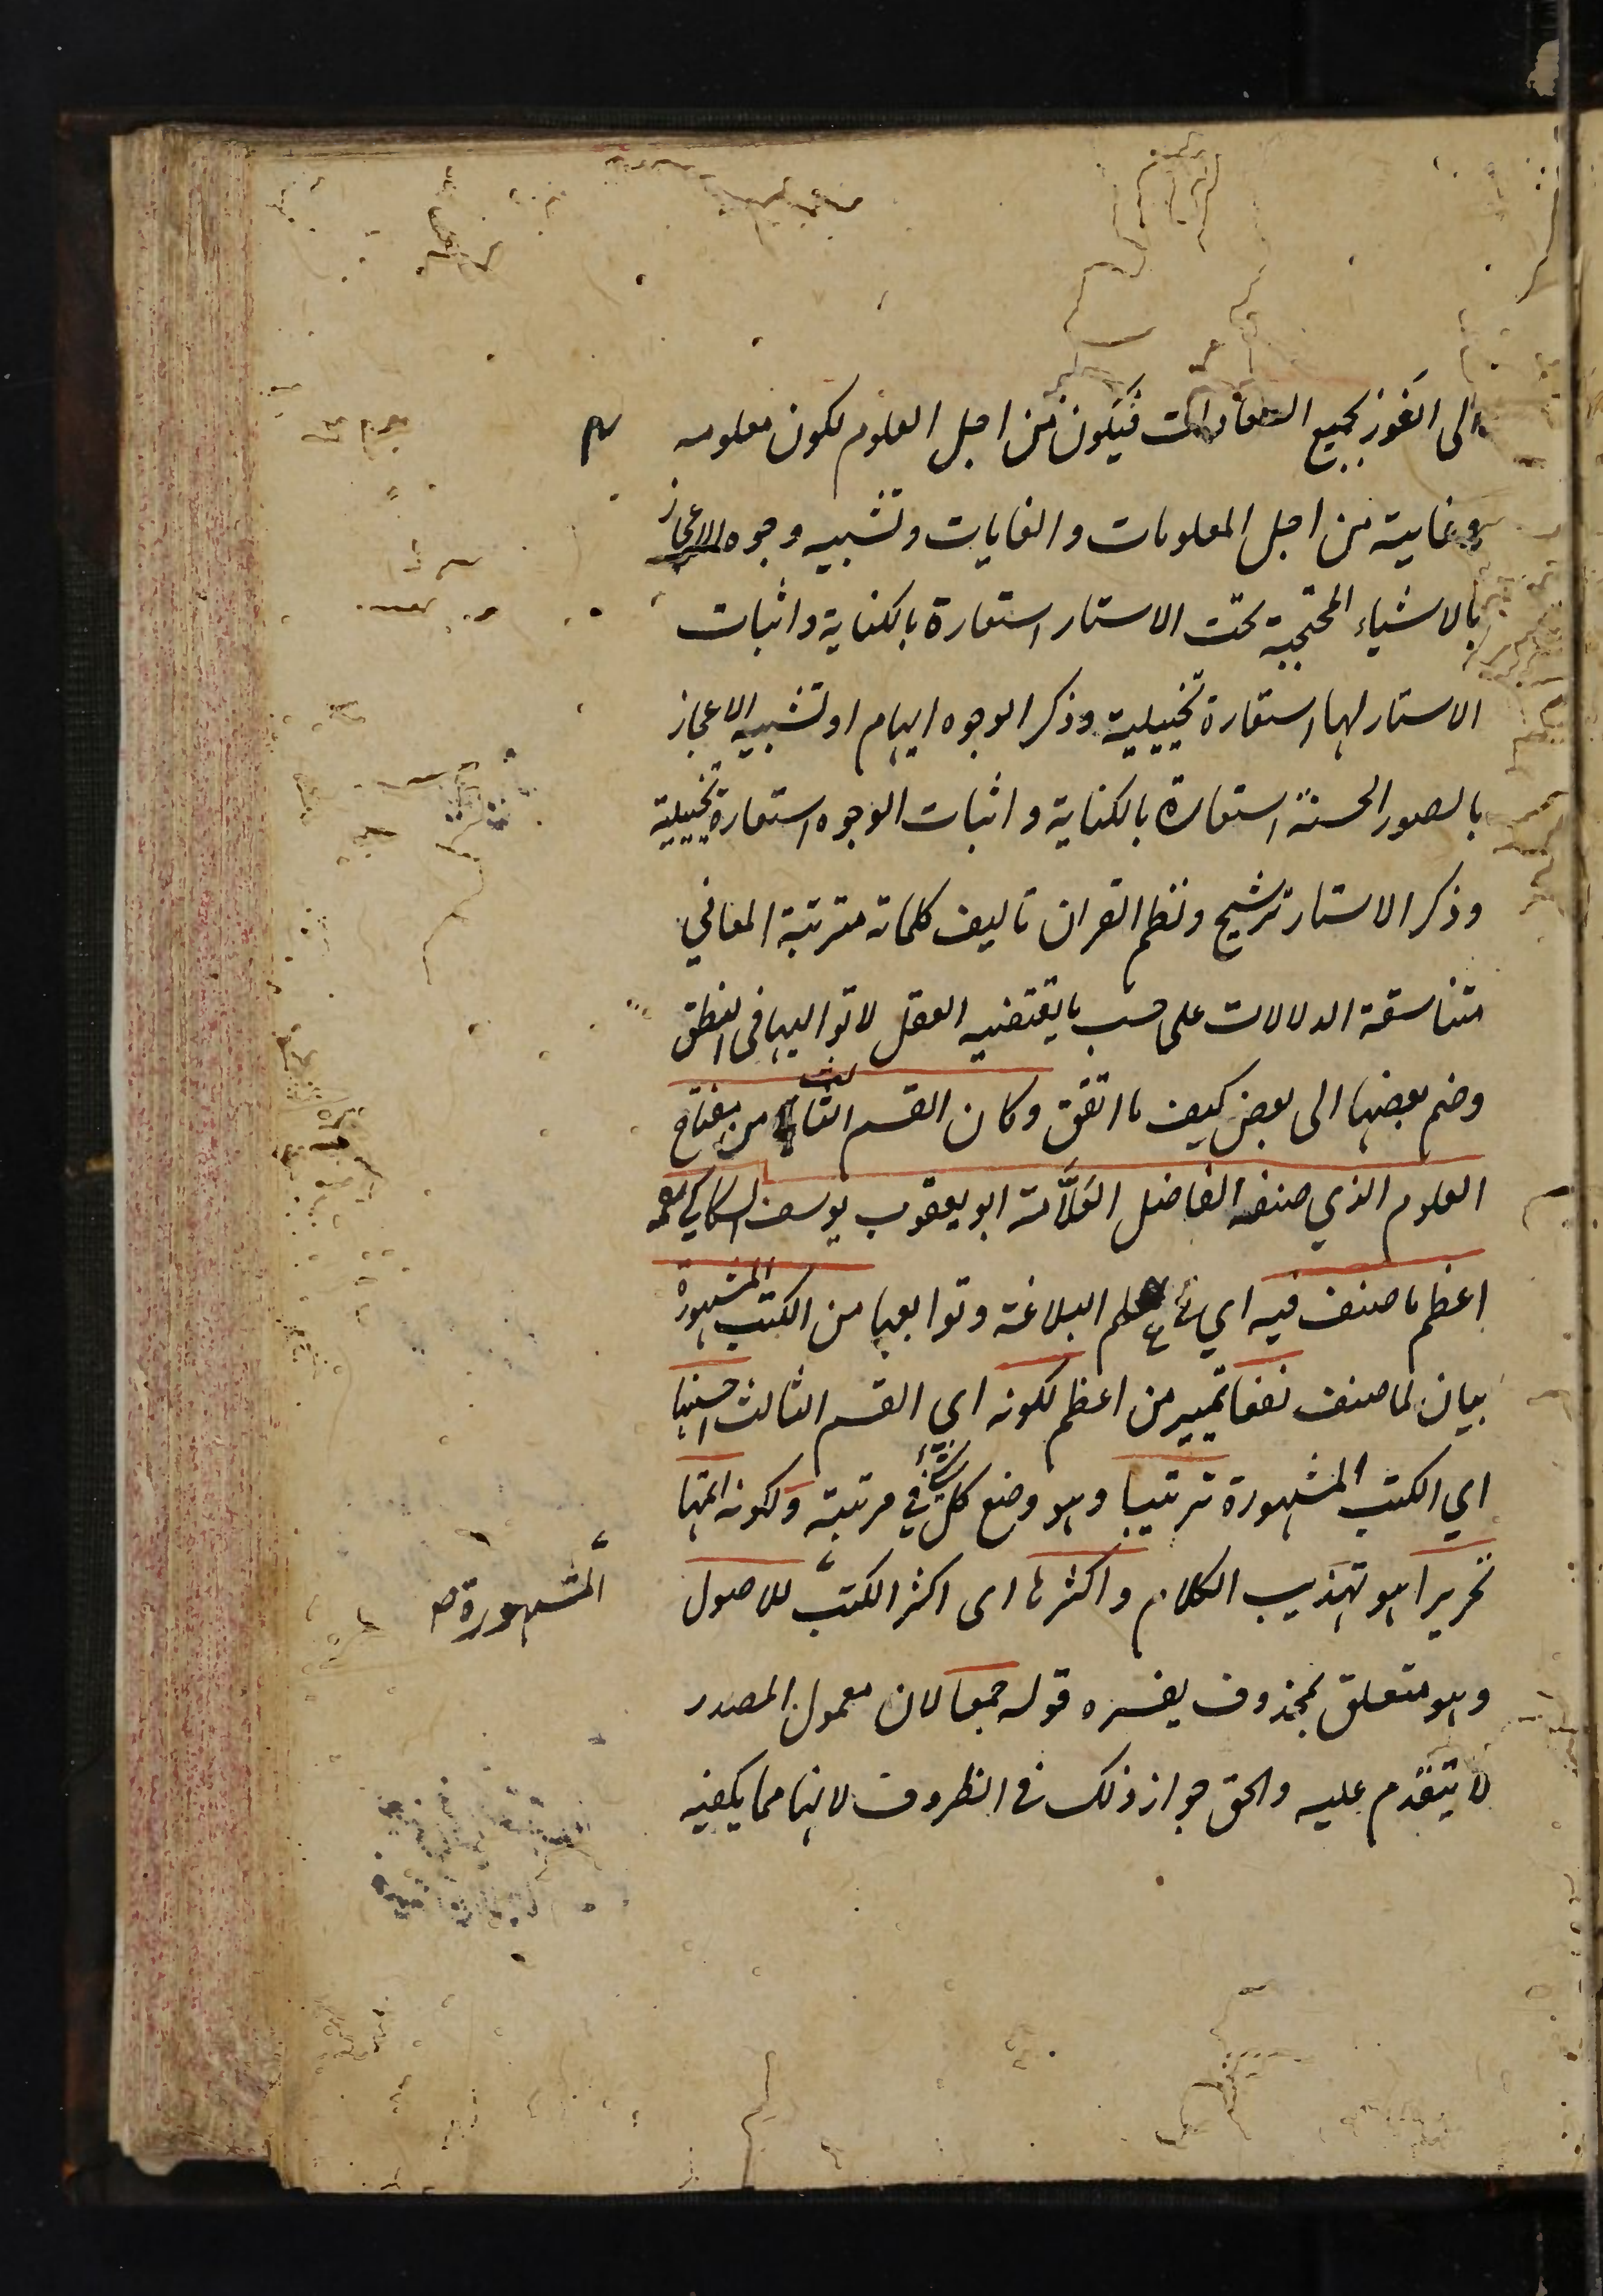 الى الفوز بجميع السعادات فيكون من اجل العلوم لكون معلومه
وغايته من اجل المعلومات والغايات وتشبيه وجوه الاعجاز
بالاشياء المحتجبة تحت الاستار استعارة بالكناية واثبات
الاستار لها استعارة تخييلية وذكر الوجوه ايهام او تشبيه الاعجاز
بالصور الحسنة استعارة بالكناية واثبات الوجوه استعارة تخييلية
وذكر الاستار ترشيح ونظم القران تاليف كلماته مترتبة المعاني
متناسقة الدلالات على حسب ما يقتضيه العقل لا تواليها في النطق
وضم بعضها الى بعض كيف ما اتفق وكان القسم الثالث من مفتاح
العلوم الذي صنفه الفاضل العلَّامة ابو يعقوب يوسف السكاكي
اعظم ما صنف فيه اي في علم البلاغة وتوابعها من الكتب المشهورة
بيان لما صنف نفعا تمييز من اعظم لكونه اي القسم الثالث احسنها
اي الكتب المشهورة ترتيبا وهو وضع كل شئ في مرتبة ولكونه اتمها
تحريرا هو تهذيب الكلام واكثرها اى اكثر الكتب للاصول
المشهورة صح
وهو متعلق بمحذوف يفسره قوله جمعا لان معمول المصدر
لا يتقدم عليه والحق جواز ذلك في الظروف لانها مما يكفيه